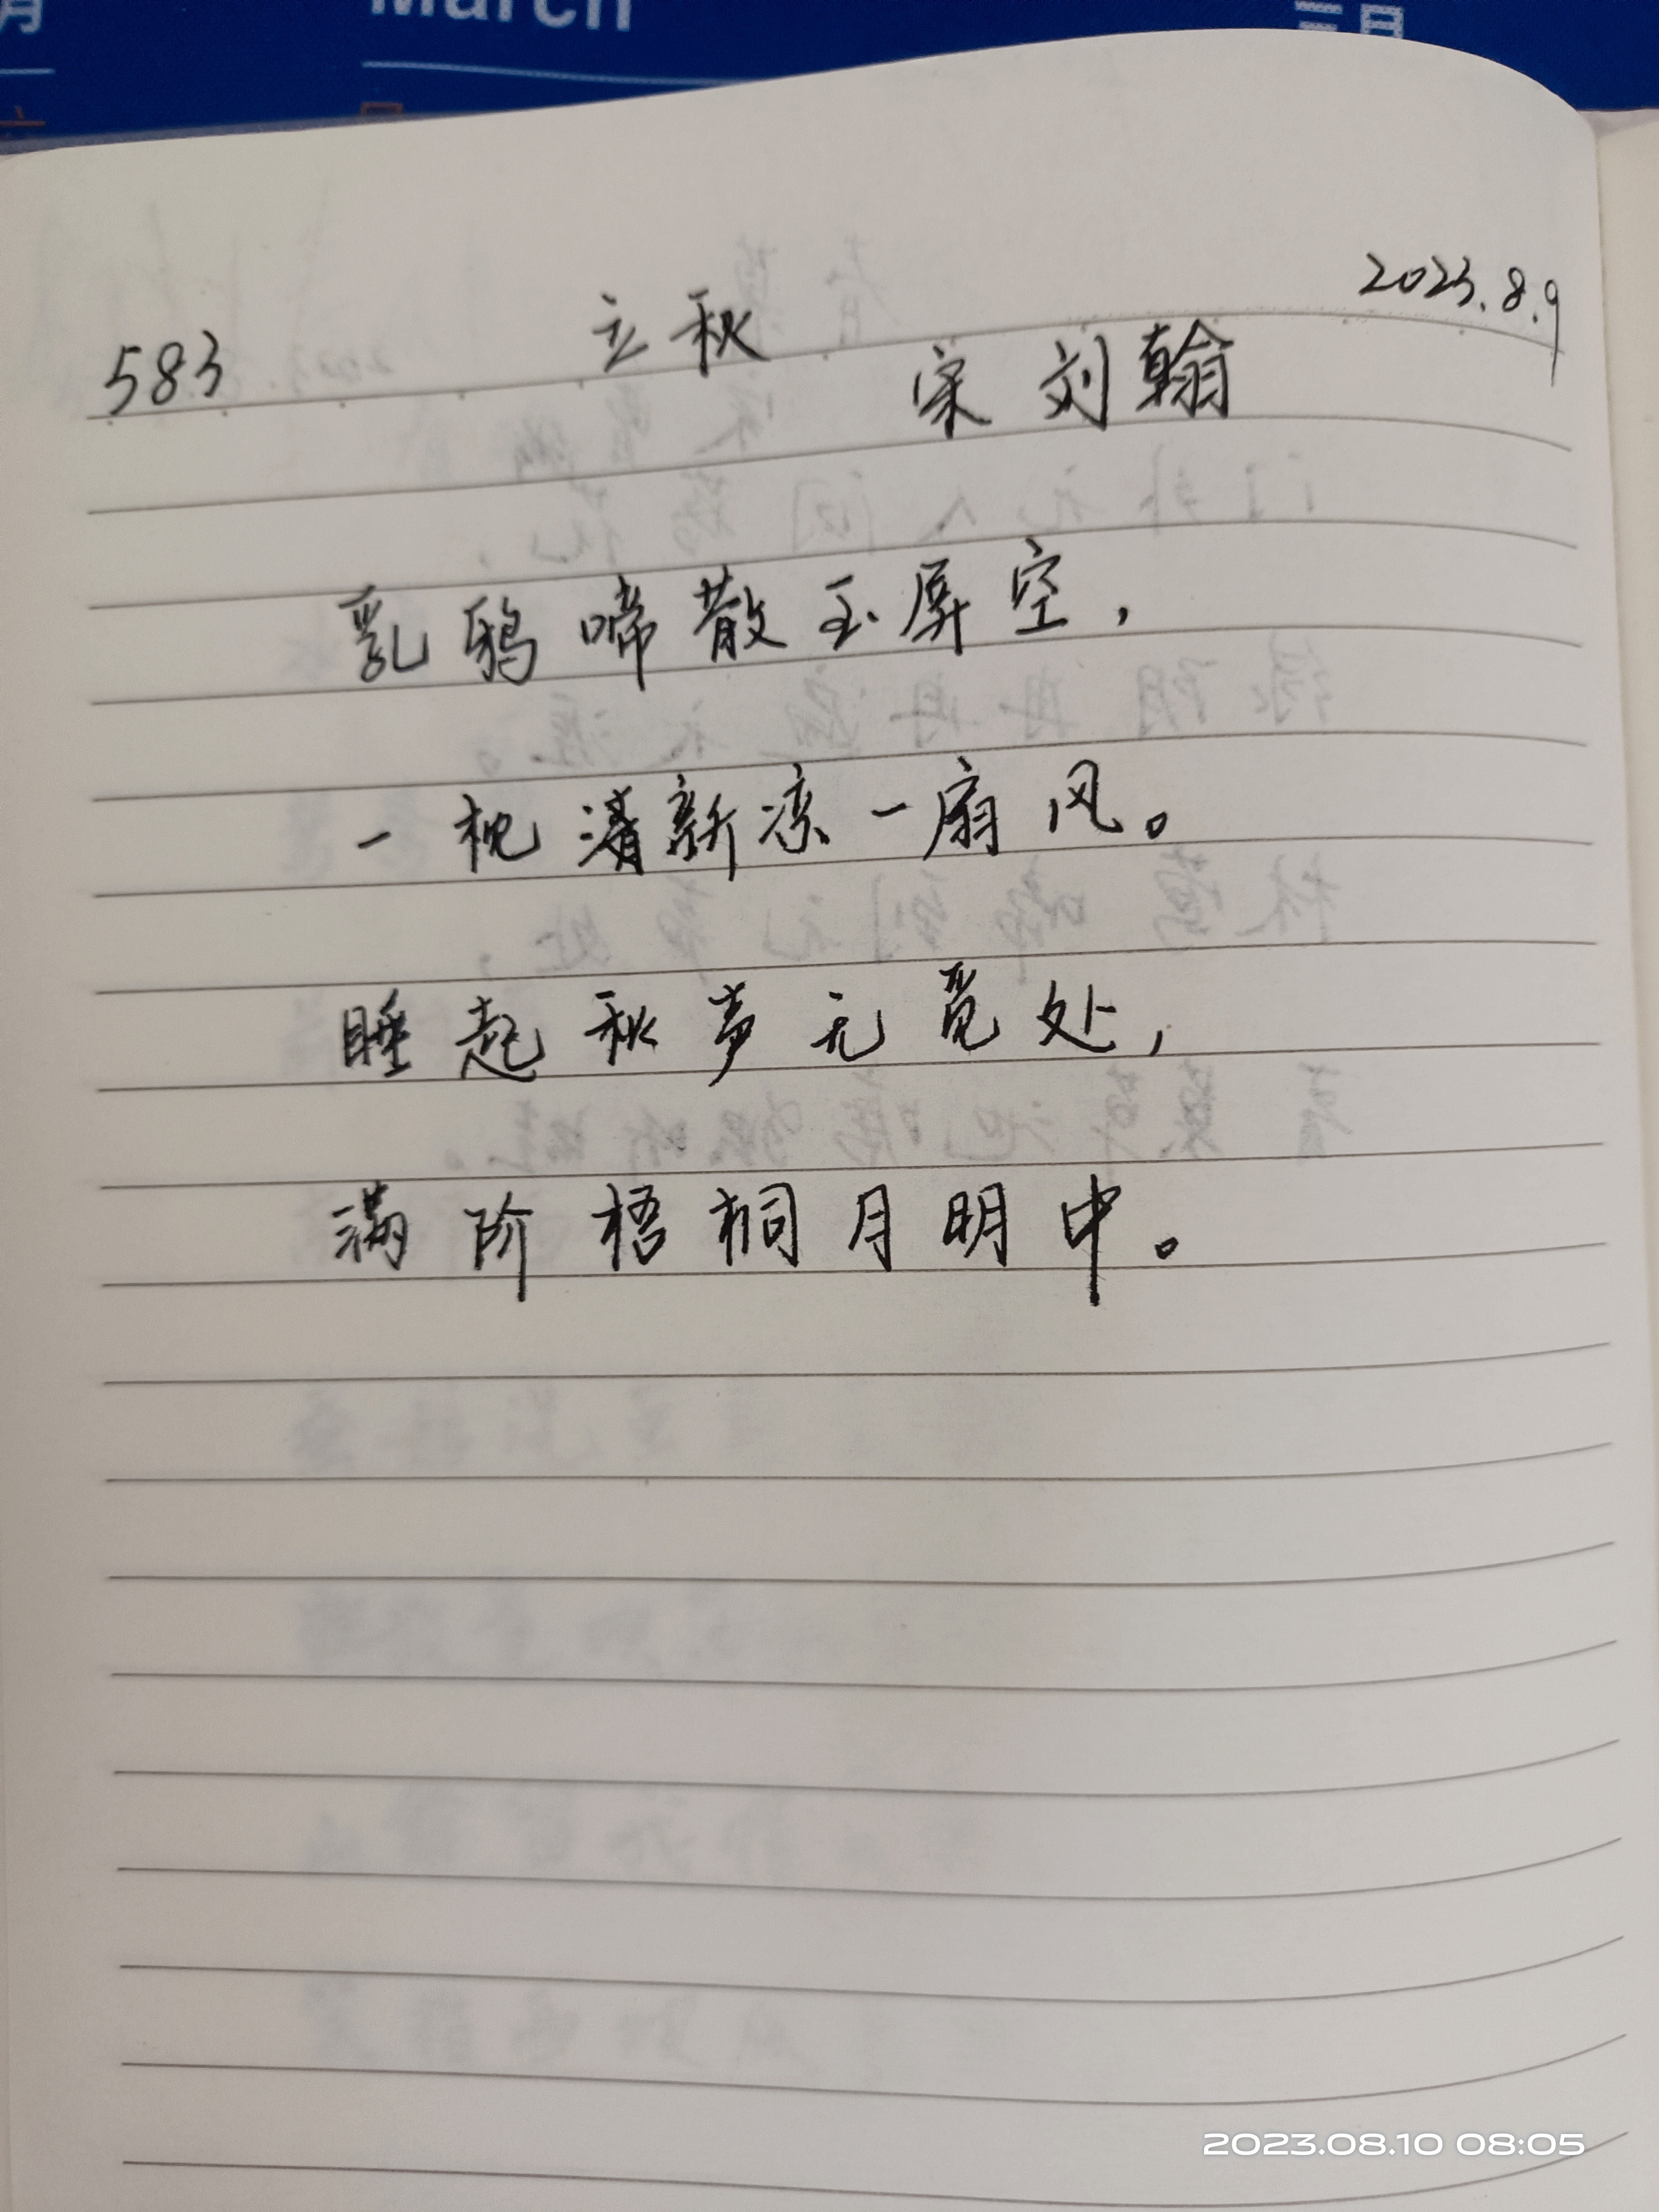 March
三月
2023.8.9
583 立秋
宋 刘翰
乳鸦啼散玉屏空，
一枕清新凉一扇风。
睡起秋声无觅处，
满阶梧桐月明中。
2023.08.10 08:05